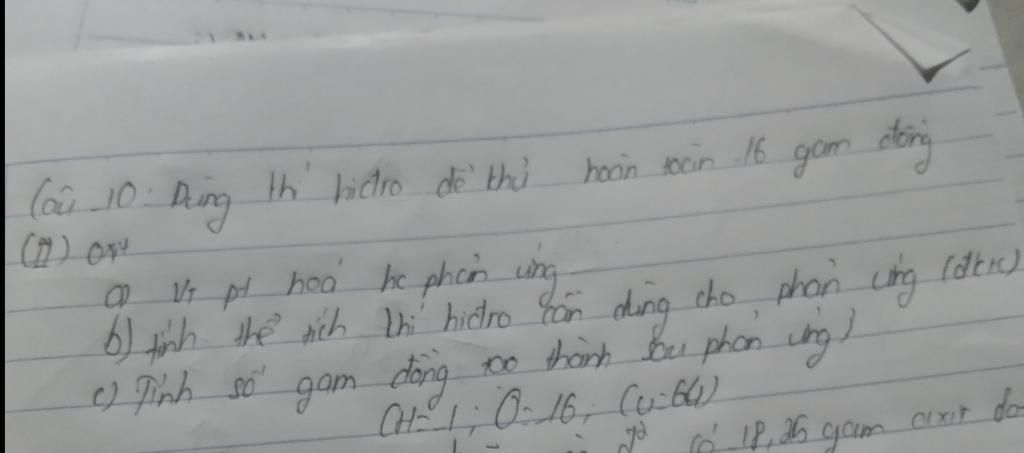 Câu 10: Dùng khí hiđro để khử hoàn toàn 16 gam đồng
(II) oxit
a) Vt pt hoá hc phản ứng
b) tính thể tích khí hiđro cần dùng cho phản ứng (đktc)
c) Tính số gam đồng tạo thành sau phản ứng)
(H=1; O=16; Cu=64)
có 18,25 gam axit